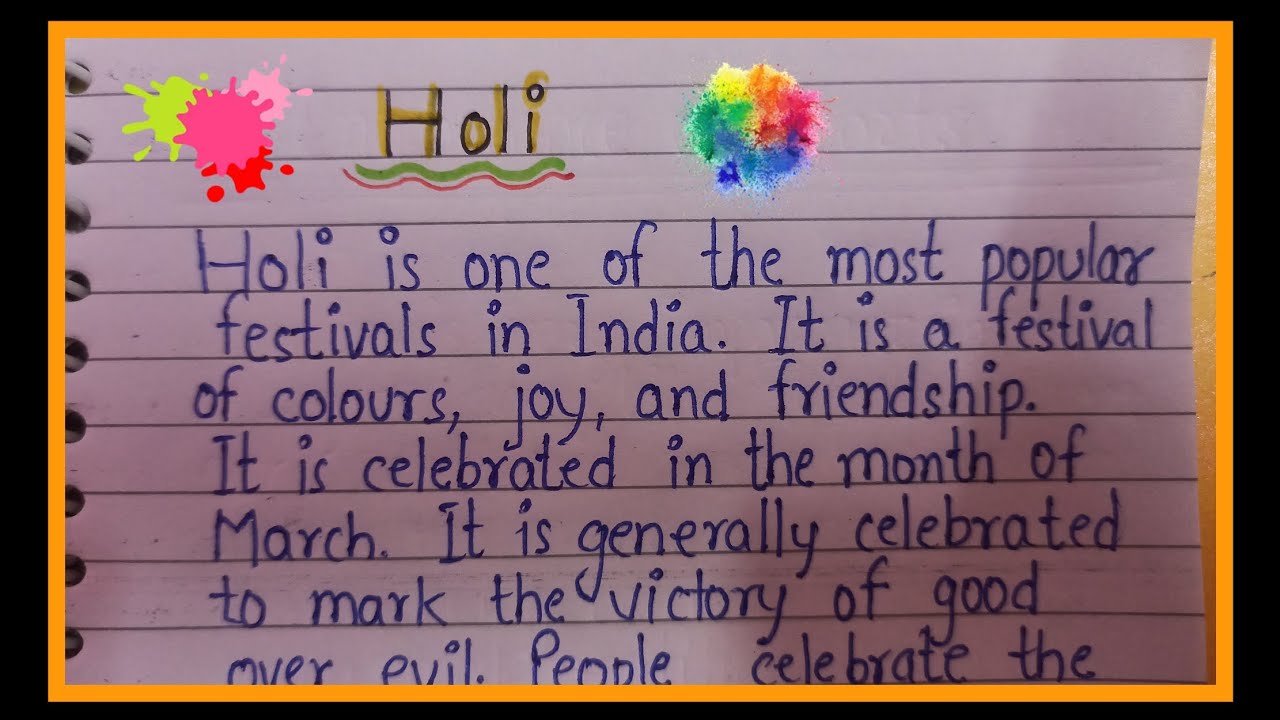 Holi
Holi is one of the most popular
festivals in India. It is a festival
of colours, joy, and friendship.
It is celebrated in the month of
March. It is generally celebrated
to mark the victory of good
over evil. People celebrate the